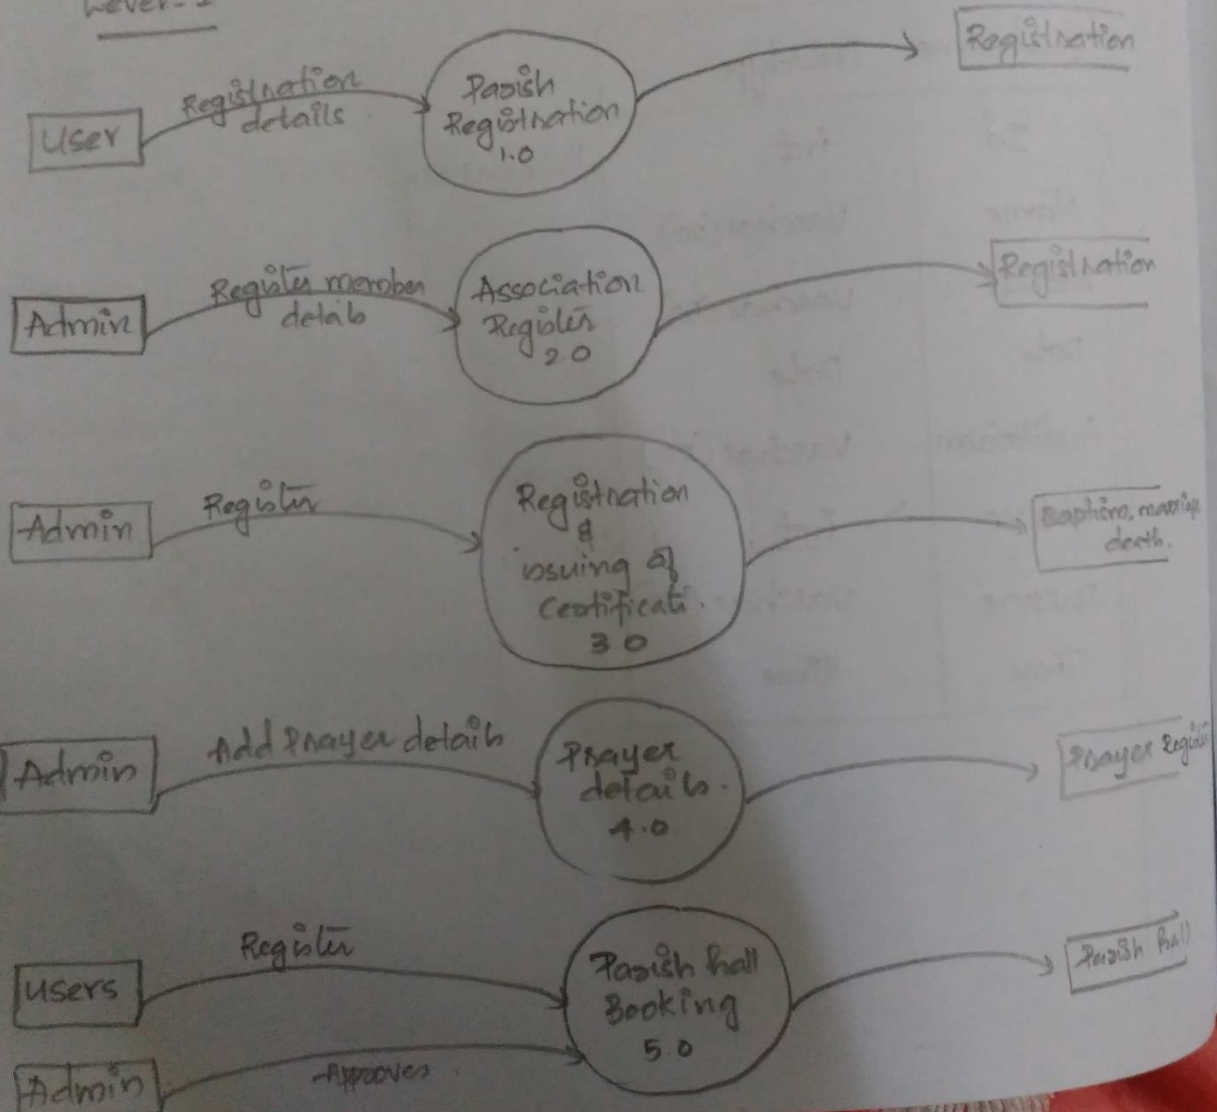 Level-1
User
Registration
details
Parish
Registration
1.0
Registration
Admin
Register member
details
Association
Register
2.0
Registration
Admin
Register
Registration
&
issuing of
Certificate.
3.0
Baptism, marriage
death.
Admin
Add Prayer details
Prayer
details.
4.0
Prayer Register
Users
Register
Parish hall
Booking
5.0
Parish hall
Admin
Approves